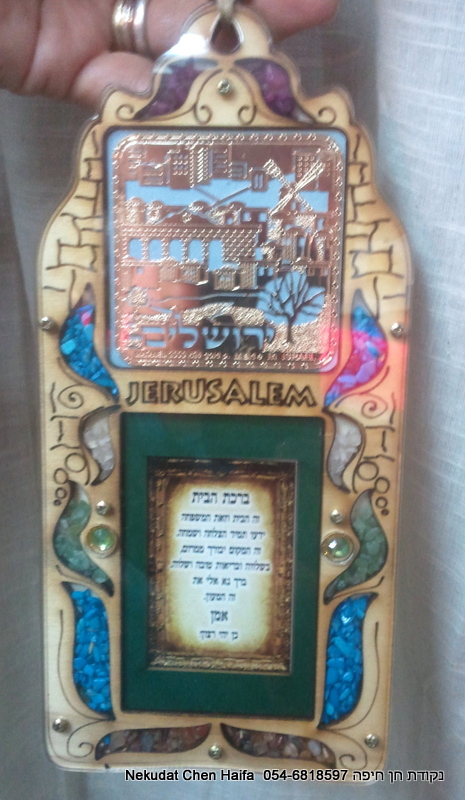 ירושלים
MADE IN ISRAEL
JERUSALEM
ברכת הבית
זה הבית וזאת המשפחה
ידעו תמיד הצלחה ושמחה,
זה המקום יבורך ממרום,
בשלווה ובריאות טובה ושלום,
ברך נא אלי את
זה המעון,
אמן
כן יהי רצון
Nekudat Chen Haifa 054-6818597 נקודת חן חיפה